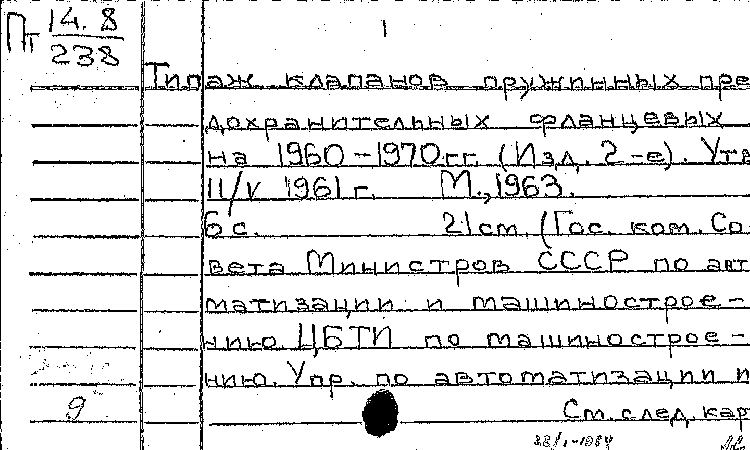 Пт 14.8
238
1
Типаж клапанов пружинных пре
дохранительных фланцевых
на 1960-1970 гг. (Изд. 2-е). Утв
11/V 1961 г. М., 1963.
6 с. 21 см. (Гос. ком. Со
вета Министров СССР по авт
матизации и машинострое-
нию. ЦБТИ по машинострое-
нию. Упр. по автоматизации и
9
См. след. кар